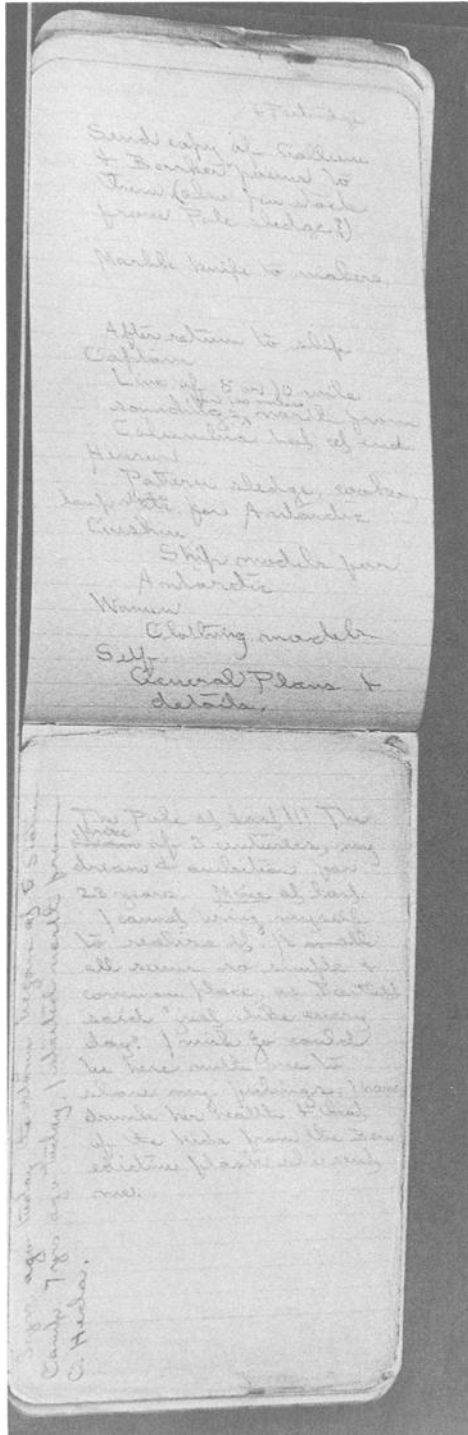 & Partridge
Send copy of
& Borker poems to
them (also
from Pole sledge?)
Marble knife to makers.
After return to ship
Captain
Line of 5 or 10 mile
soundings, north from
Columbia
Henson
Pattern sledge, cooker,
etc. for Antarctic
Cushue
Ship models for
Antarctic
Women
Clothing models
Self
General Plans &
details.
The Pole at last!!! The
prize of 3 centuries, my
dream & ambition for
23 years. Mine at last.
I cannot bring myself
to realize it. It
all seems so simple &
common place, as
said "just like every
day." I wish Jo could
be here with me to
share my feelings. I have
drunk her health & that
of the kids from the Ben-
edictine flask she sent
me.
yrs ago today
Camp 7 yrs ago today, I started north from
C. Hecla.